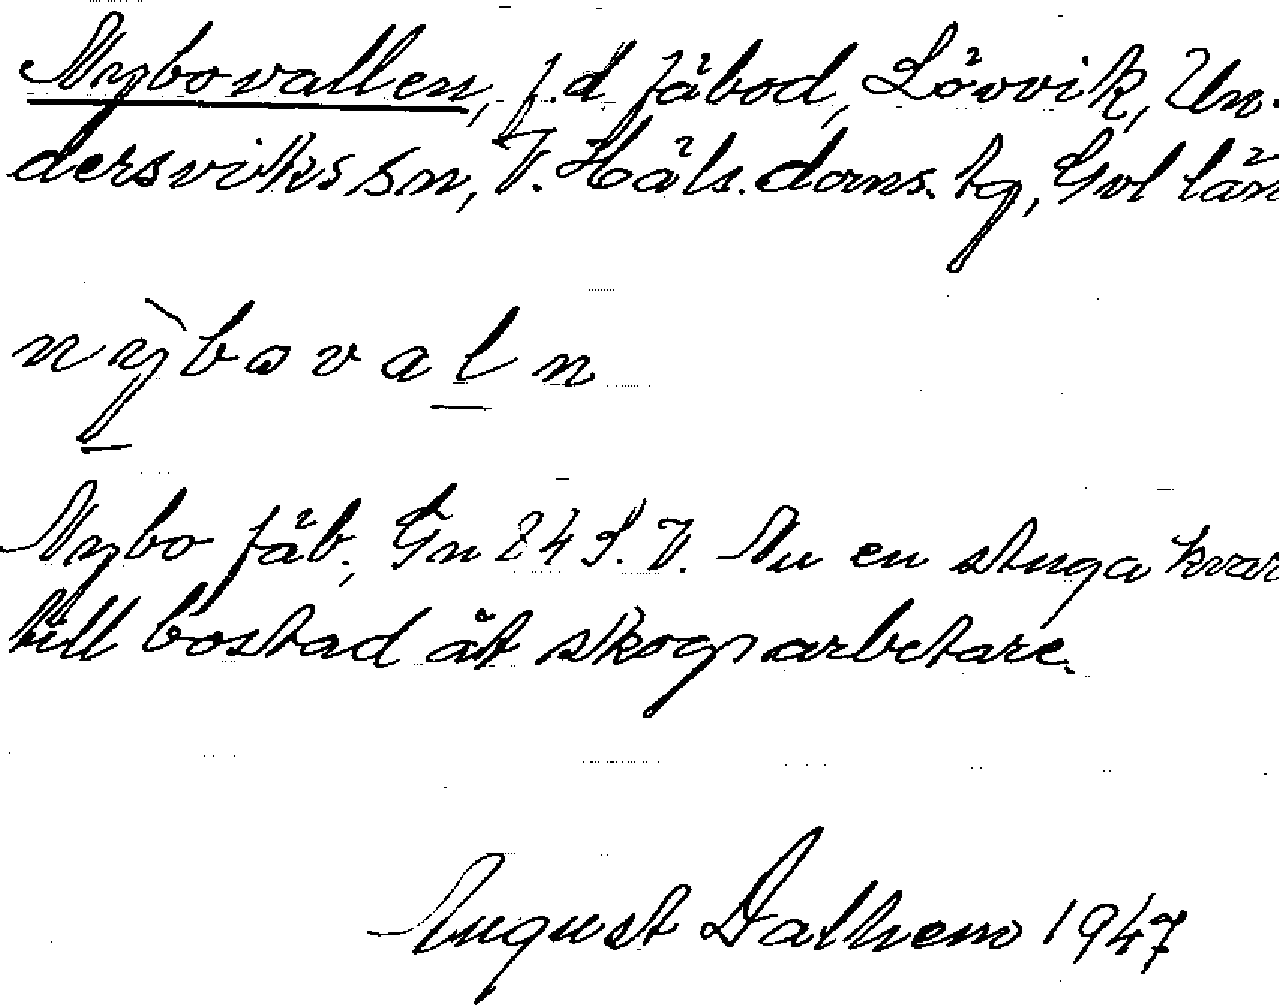 Nybovallen, f.d. fäbod, Lövvik, Un-
dersviks sn, V. Häls. doms. tg, Gvl län
nỳbovaln
Nybo fäb., Gn 84 S.V. Nu en stuga kvar
till bostad åt skogsarbetare.
August Dalhem 1947